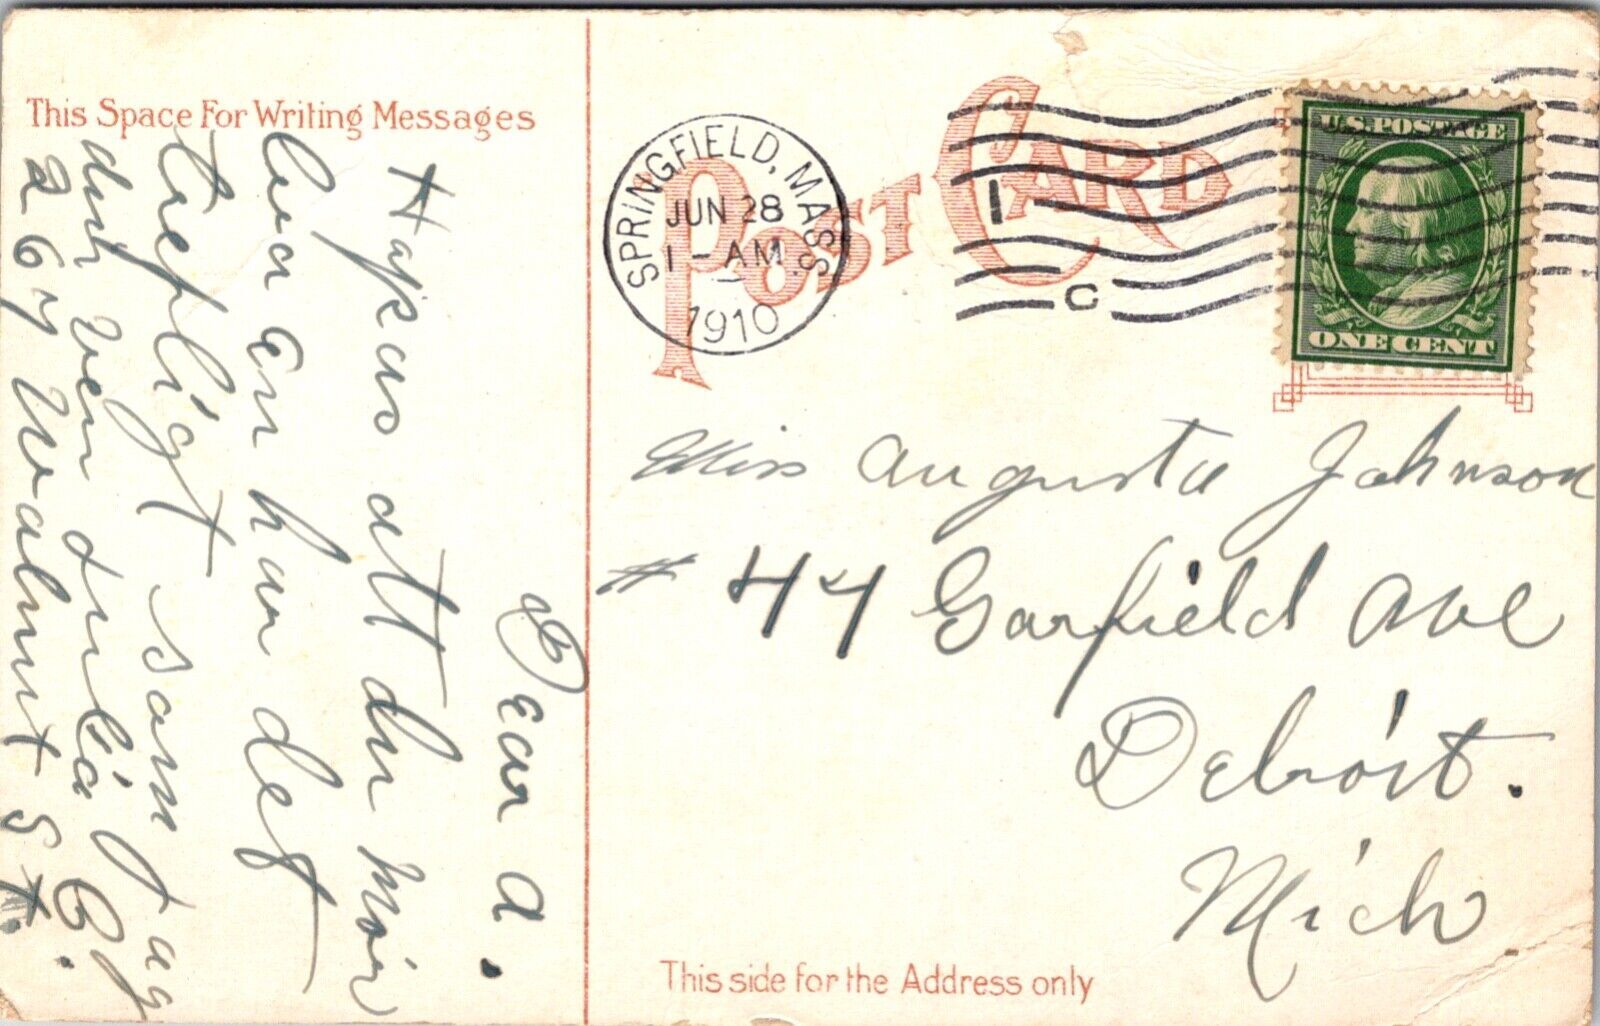 This Space For Writing Messages
Dear A.
Hapas att du mår
bra En har det
trefligt som jag
din vän Julia C.
267 Walnut St.
POST CARD
SPRINGFIELD, MASS.
JUN 28
1-AM
1910
1
C
U.S. POSTAGE
ONE CENT
Miss Augusta Johnson
# 44 Garfield Ave
Detroit.
Mich
This side for the Address only